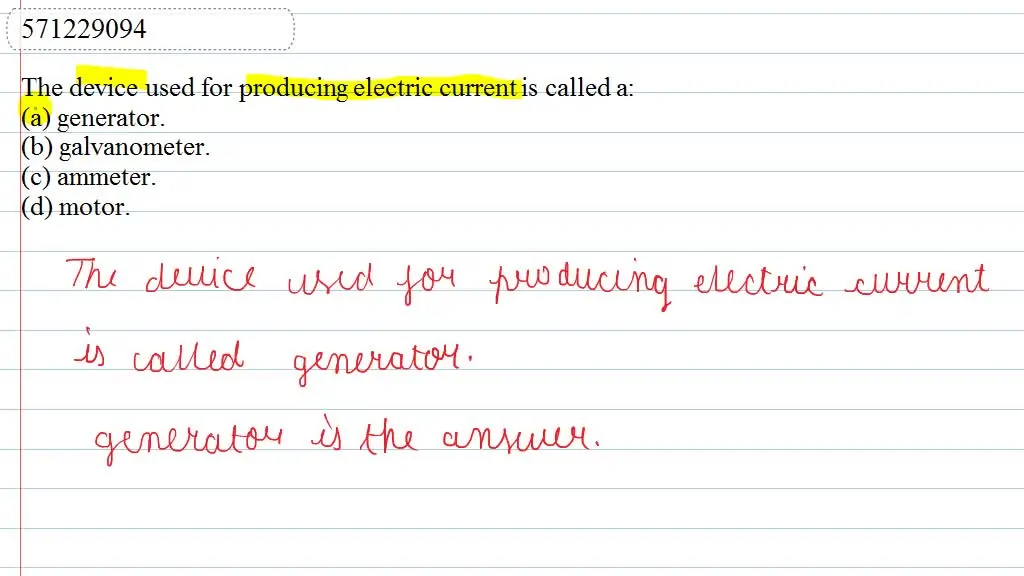 571229094
The device used for producing electric current is called a:
(a) generator.
(b) galvanometer.
(c) ammeter.
(d) motor.
The device used for producing electric current
is called generator.
generator is the answer.